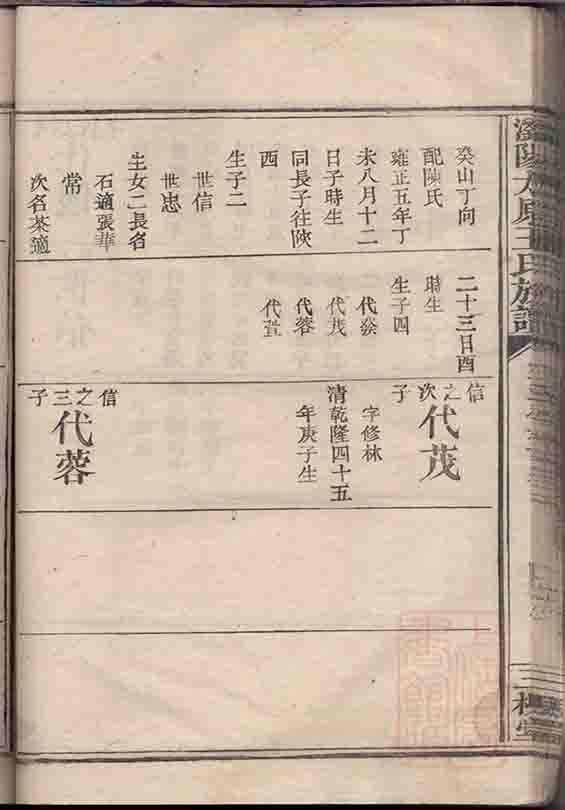 癸山丁向
配陳氏
雍正五年丁
未八月十二
日子時生
同長子往陝
西
生子二
世信
世忠
生女二長名
石適張華
常
次名茶適
二十三日酉
時生
生子四
代發
代茂
代蓉
代萱
信之次子
代茂
字修林
清乾隆四十五
年庚子生
信之三子
代蓉
王氏族譜
三